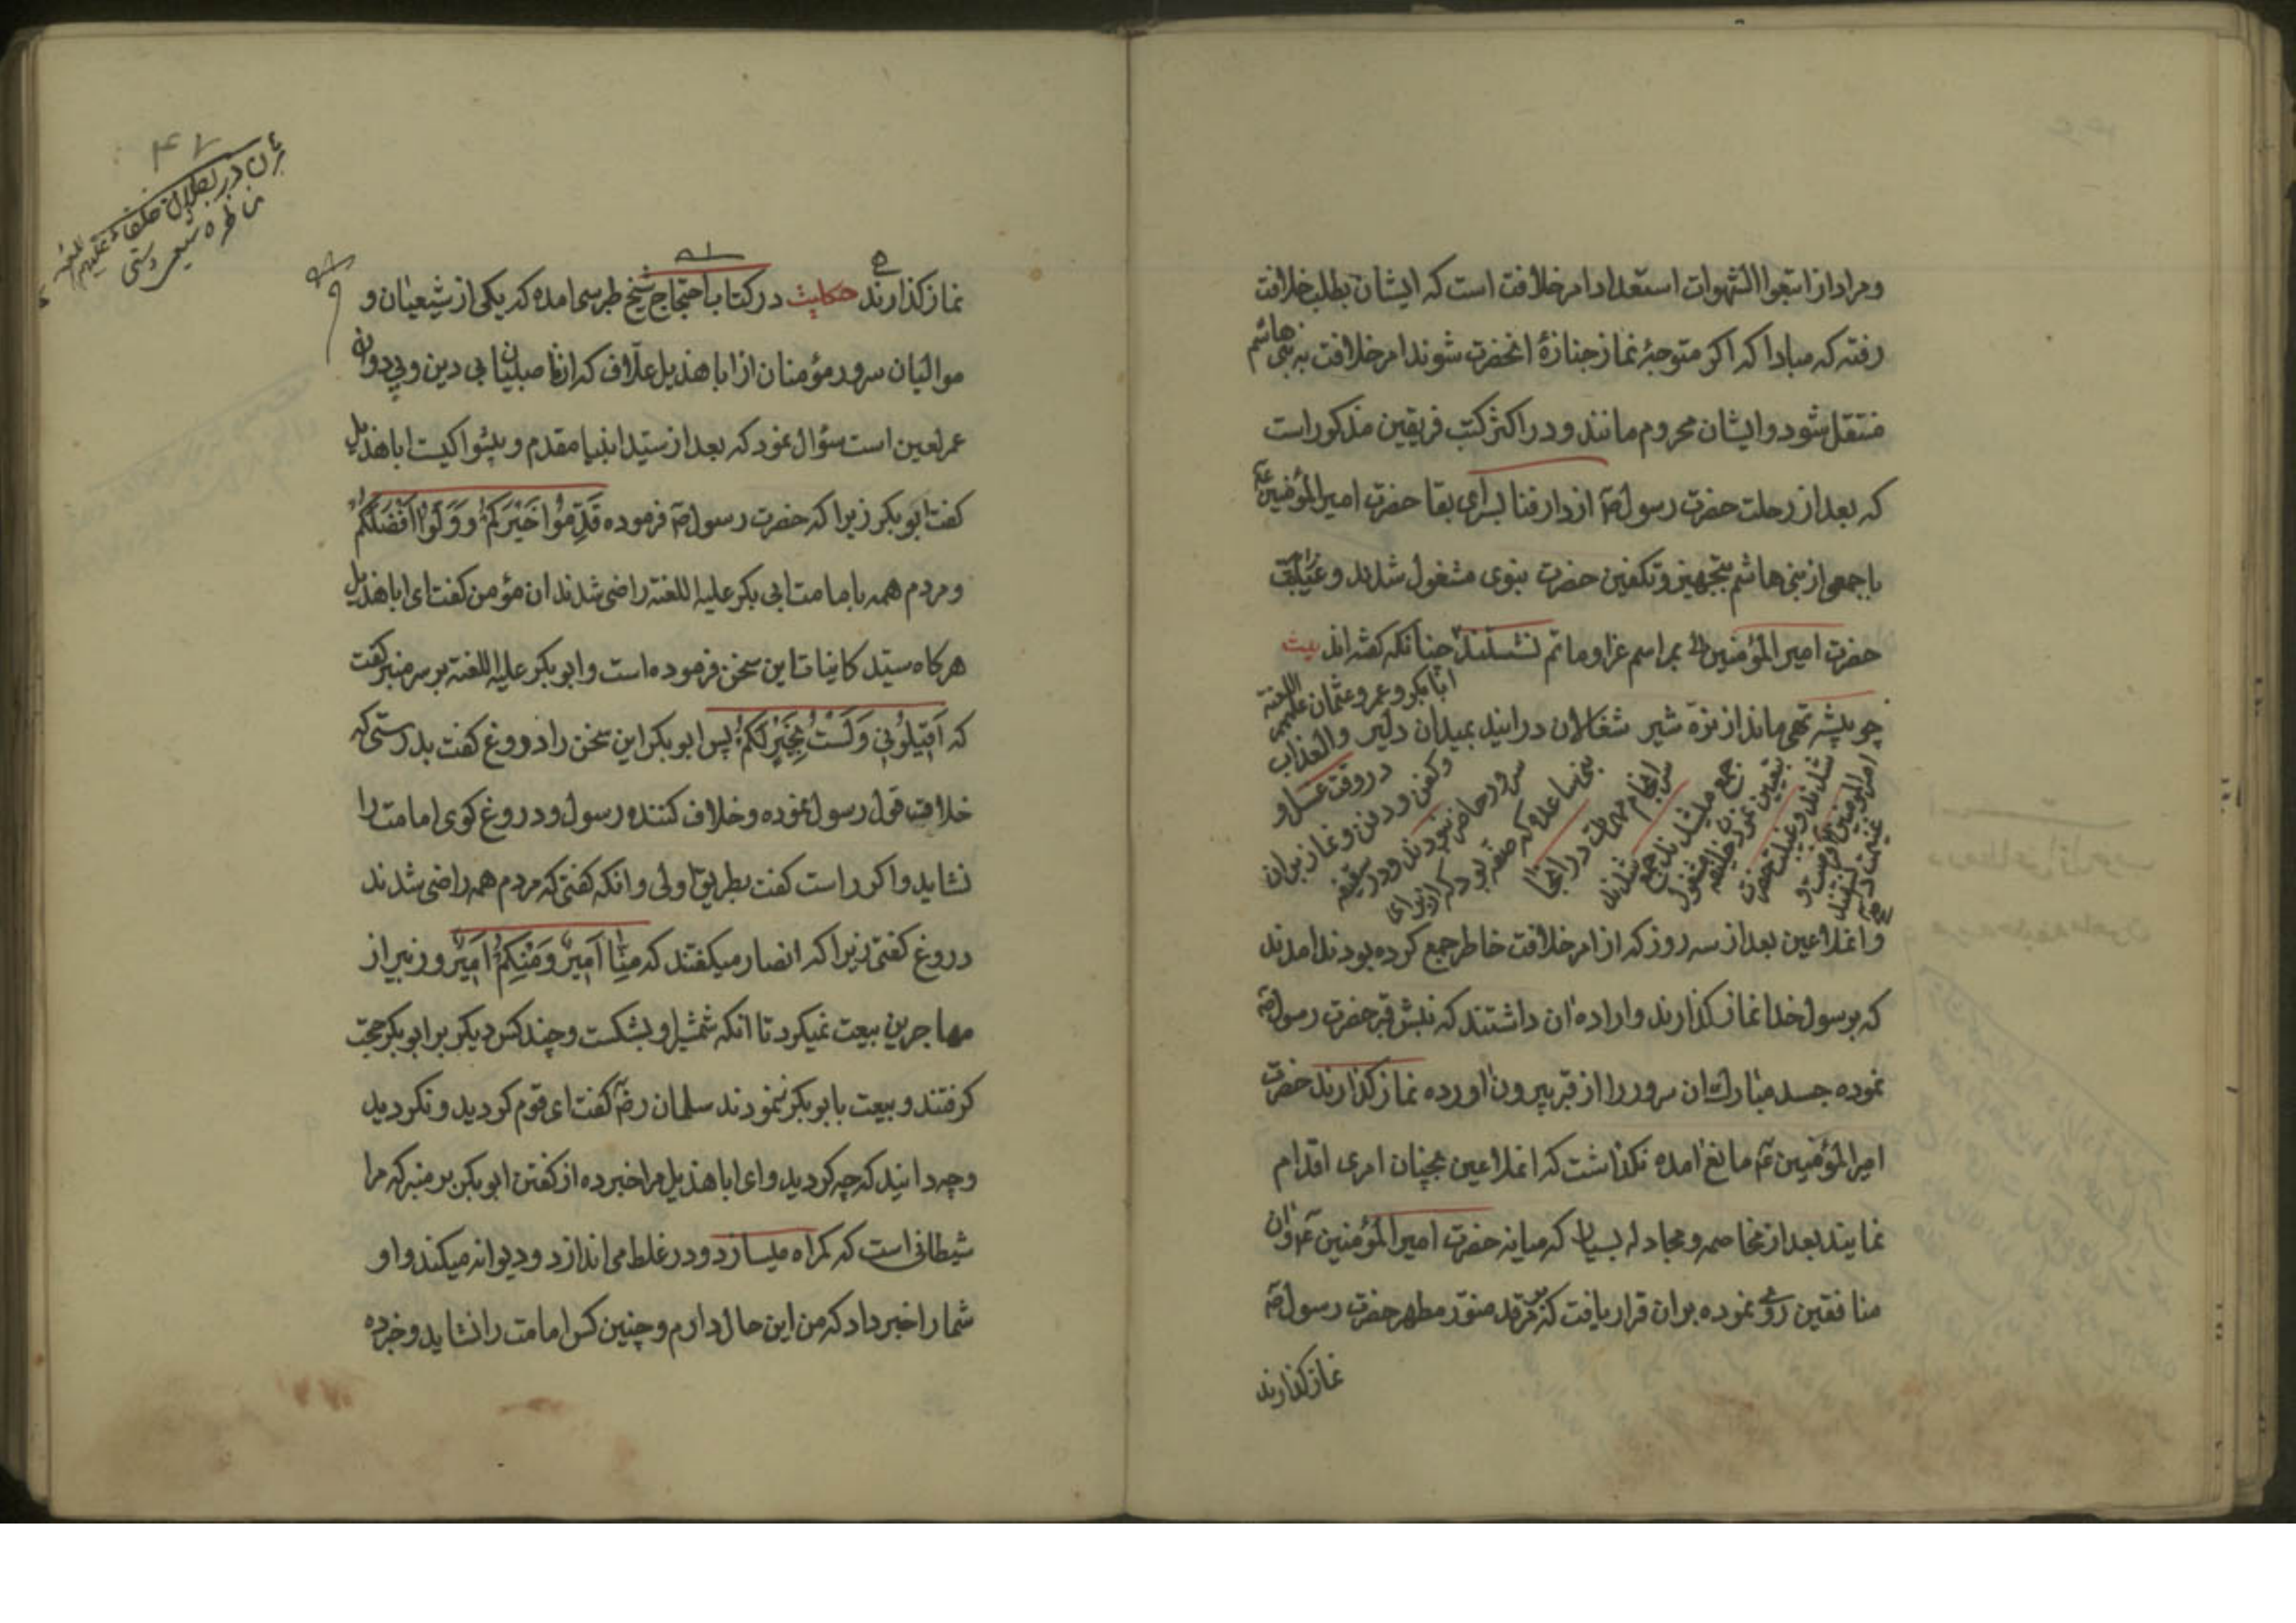 ومراد از اتبعوا الشهوات استعداد امر خلافت است که ایشان بطلب خلافت
رفته که مبادا که اکر متوجهٔ نماز جنازهٔ انحضرت شوند امر خلافت به بنی هاشم
منتقل شود وایشان محروم مانند و در اکثر کتب فریقین مذکور است
که بعد از رحلت حضرت رسول ص از دار فنا بسرای بقا حضرت امیرالمؤمنین ع
با جمعی از بنی هاشم بتجهیز و تکفین حضرت نبوی مشغول شدند و
حضرت امیر المؤمنین بمراسم عزا و ماتم نشستند چنانکه کفته اند بیت
چو بیشه تهی ماند از نرّه شیر شغالان درایند بمیدان دلیر
ابابکر و عمر و عثمان علیهم اللعنة
والعذاب
در وقت غسل و
وکفن و دفن و نماز بران
سرور حاضر نبودند و در سقیفه
بنی ساعده که صفه بود که از برای
سرانجام مهمات در انجا
جمع میشدند جمع شدند
بتعیین نمودن خلیفه مشغول
شدند و غیبت حضرت
امیرالمؤمنین را فرصت و
غنیمت دانستند
و انملاعین بعد از سه روز که از امر خلافت خاطر جمع کرده بودند امدند
که برسول خدا نماز کذارند و اراده ان داشتند که نبش قبر حضرت رسول ص
نموده جسد مبارک ان سرور را از قبر بیرون اورده نماز کذارند حضرت
امیرالمؤمنین ع مانع امده نکذاشت که انملاعین بچنان امری اقدام
نمایند بعد از مخاصمه و مجادله بسیار که میانه حضرت امیرالمؤمنین ع و ان
منافقین روی نموده بران قرار یافت که بر مرقد منوّر مطهر حضرت رسول ص
نماز کذارند
۴۷
در بطلان خلفاء علیهم اللعنه
مناظره شیعی و سنّی
نماز کذارند حکایت در کتاب احتجاج شیخ طبرسی امده که یکی از شیعیان و
موالیان سرور مؤمنان از اباهذیل علّاف که از ناصبیان بی دین و پی دوان
عمر لعین است سؤال نمود که بعد از سیّد انبیا مقدم و پیشوا کیست اباهذیل
کفت ابوبکر زیرا که حضرت رسول ص فرموده قَدِّمُوا خَیْرَکُمْ وَوَلُّوا اَفْضَلَکُمْ
و مردم همه بامامت ابی بکر علیه اللعنه راضی شدند ان مؤمن کفت ای اباهذیل
هرکاه سیّد کاینات این سخن فرموده است و ابوبکر علیه اللعنة بر سر منبر کفت
که اَقِیلُونِی وَلَسْتُ بِخَیْرِکُمْ پس ابوبکر این سخن را دروغ کفت بدرستی که
خلاف قول رسول نموده و خلاف کننده رسول و دروغ کوی امامت را
نشاید و اکر راست کفت بطریق اولی و انکه کفتی که مردم همه راضی شدند
دروغ کفتی زیرا که انصار میکفتند که مِنّا اَمِیرٌ وَمِنْکُمْ اَمِیرٌ و زبیر از
مهاجرین بیعت نمیکرد تا انکه شمشیر او بشکست و چند کس دیکر بر ابوبکر حجت
کرفتند و بیعت بابوبکر ننمودند سلمان رض کفت ای قوم کردید و نکردید
و چه دانید که چه کردید و ای اباهذیل مرا خبر ده از کفتن ابوبکر بر منبر که مرا
شیطانی است که کمراه میسازد و در غلط می اندازد و دیوانه میکند و او
شما را خبر داد که من این حال دارم و چنین کس امامت را نشاید و خبر ده